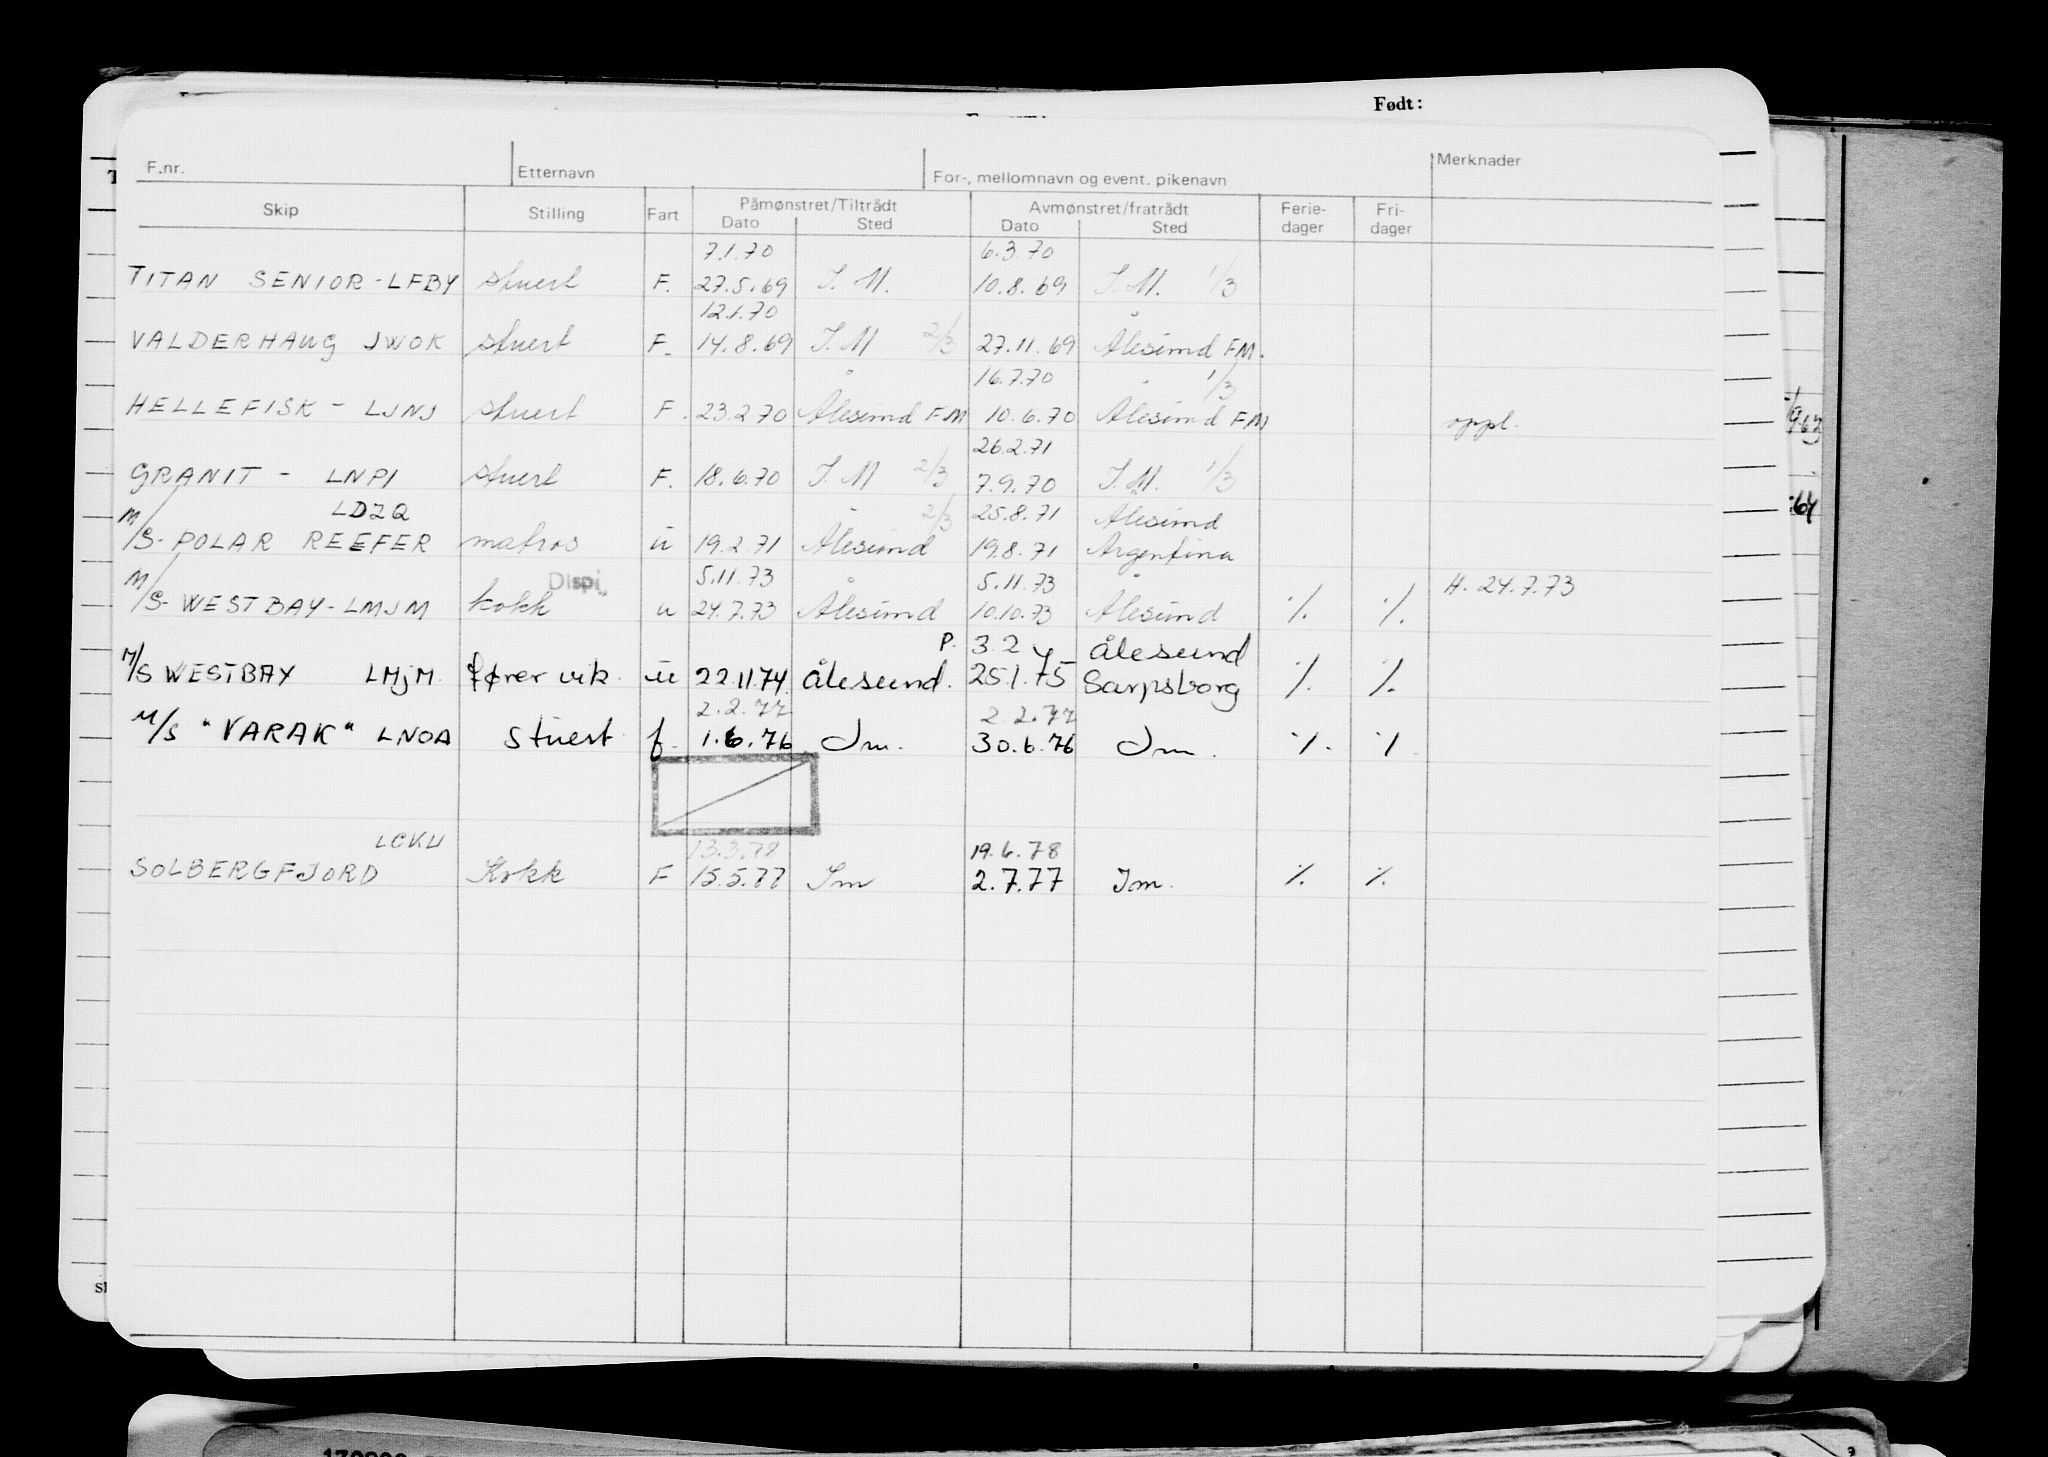 Født:
F.nr. Etternavn For-, mellomnavn og event. pikenavn Merknader
Skip Stilling Fart Påmønstret/Tiltrådt Avmønstret/fratrådt Ferie- Fri-
Dato Sted Dato Sted dager dager
7.1.70 6.3.70
TITAN SENIOR-LFBY stuert F. 27.5.69 I.M. 10.8.69 I.M. 1/3
12.1.70
VALDERHAUG JWOK stuert F. 14.8.69 I.M 2/3 27.11.69 Ålesund FM.
16.7.70 1/3
HELLEFISK - LJNJ stuert F. 23.2.70 Ålesund FM 10.6.70 Ålesund FM oppl.
26.2.71
GRANIT - LNPI stuert F. 18.6.70 I.M 2/3 7.9.70 I.M. 1/3
LDZQ 2/3 25.8.71 Ålesund
M/S-POLAR REEFER matros u 19.2.71 Ålesund 19.8.71 Argentina
Dispi. 5.11.73 5.11.73 H. 24.7.73
M/S-WESTBAY-LMJM kokk u 24.7.73 Ålesund 10.10.73 Ålesund ./. ./.
P. 3.2 Ålesund
M/S WESTBAY LMJM fører vik. u 22.11.74 Ålesund. 25.1.75 Sarpsborg ./. ./.
2.2.77 2.2.77
M/S "VARAK" LNOA stuert f. 1.6.76 Im. 30.6.76 Im. ./. ./.
LCKU 13.3.78 19.6.78
SOLBERGFJORD Kokk F 15.5.77 Im 2.7.77 Im. ./. ./.